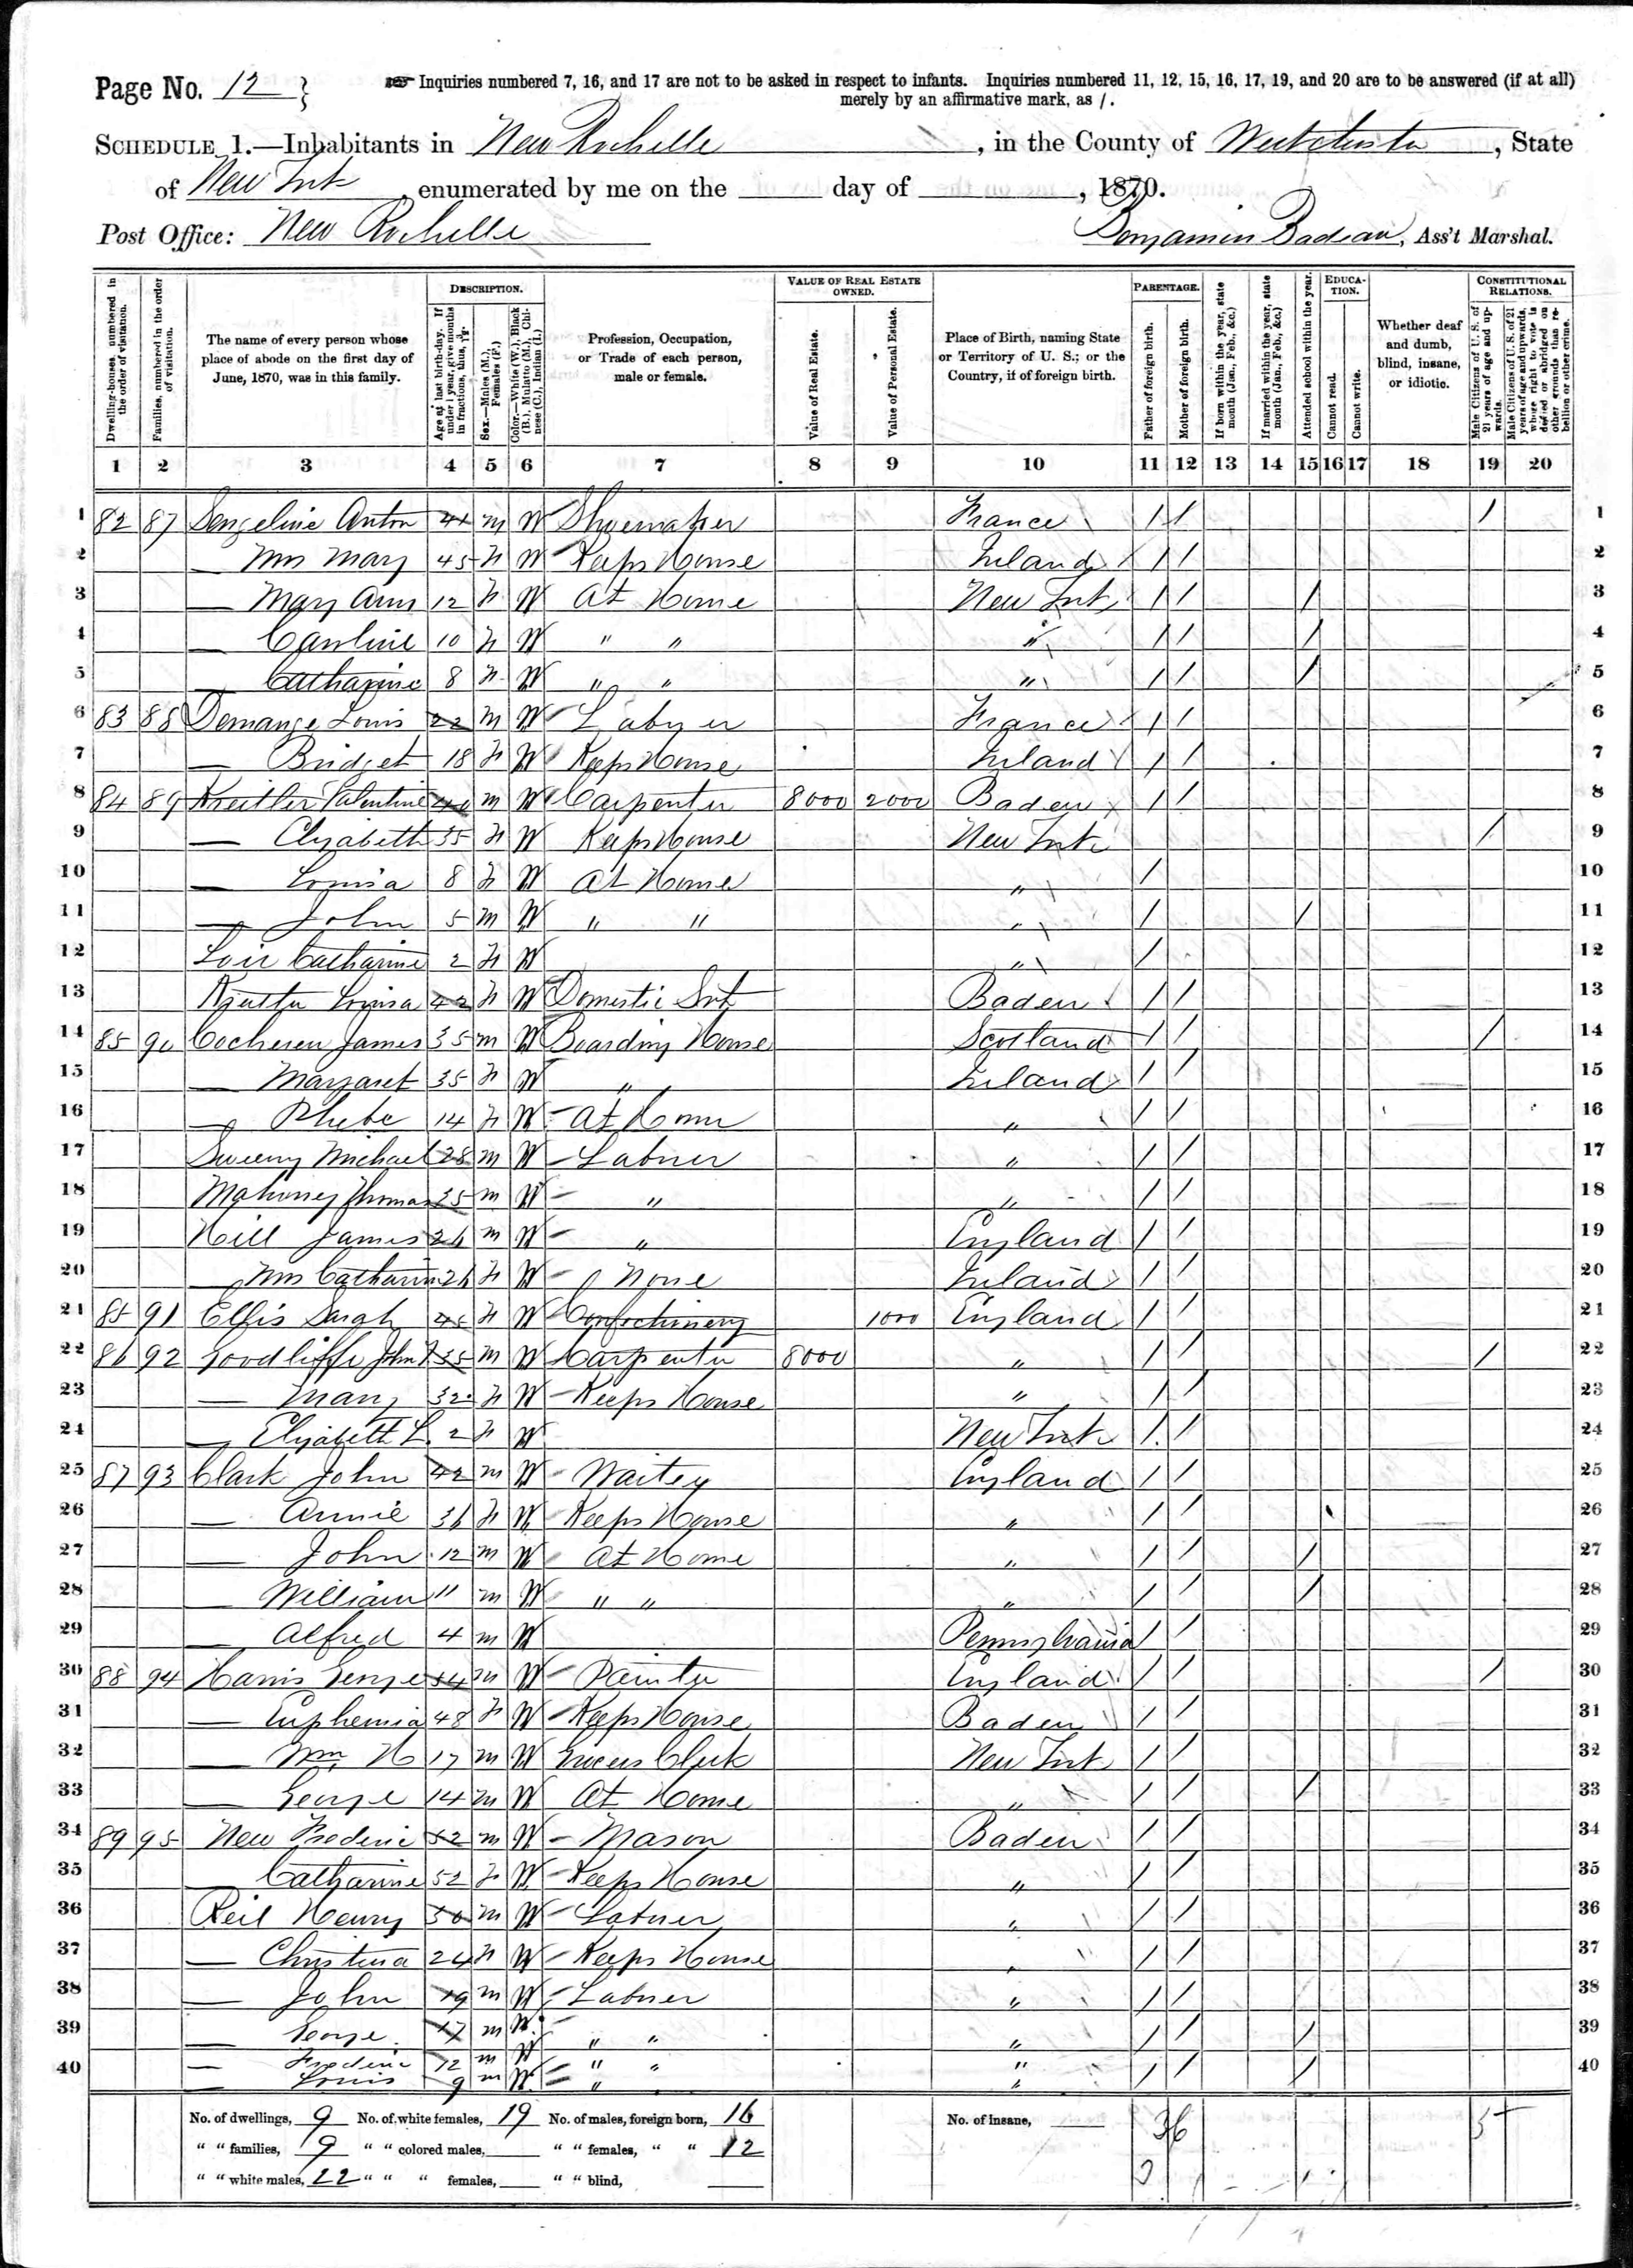 Page No. 12 } Inquiries numbered 7, 16, and 17 are not to be asked in respect to infants. Inquiries numbered 11, 12, 15, 16, 17, 19, and 20 are to be answered (if at all)
merely by an affirmative mark, as /.
SCHEDULE 1.—Inhabitants in New Rochelle, in the County of Westchester, State
of New York, enumerated by me on the ___ day of ___, 1870.
Post Office: New Rochelle Benjamin Badeau, Ass't Marshal.
Dwelling-houses, numbered in the order of visitation.
Families, numbered in the order of visitation.
The name of every person whose place of abode on the first day of June, 1870, was in this family.
DESCRIPTION.
Age at last birth-day. If under 1 year, give months in fractions, thus,
Sex.—Males (M.), Females (F.)
Color.—White (W.), Black (B.), Mulatto (M.), Chinese (C.), Indian (I.)
Profession, Occupation, or Trade of each person, male or female.
VALUE OF REAL ESTATE OWNED.
Value of Real Estate.
Value of Personal Estate.
Place of Birth, naming State or Territory of U. S.; or the Country, if of foreign birth.
PARENTAGE.
Father of foreign birth.
Mother of foreign birth.
If born within the year, state month (Jan., Feb., &c.)
If married within the year, state month (Jan., Feb., &c.)
Attended school within the year.
EDUCATION.
Cannot read.
Cannot write.
Whether deaf and dumb, blind, insane, or idiotic.
CONSTITUTIONAL RELATIONS.
Male Citizens of U. S. of 21 years of age and upwards.
Male Citizens of U. S. of 21 years of age and upwards, whose right to vote is denied or abridged on other grounds than rebellion or other crime.
1 2 3 4 5 6 7 8 9 10 11 12 13 14 15 16 17 18 19 20
1 82 87 Sengeline Anton 41 M W Shoemaker France / / / 1
2 — Mrs Mary 45 F W Keeps House Ireland / / 2
3 — Mary Ann 12 F W At Home New York / / / 3
4 — Caroline 10 F W " " " / / / 4
5 — Catharine 8 F W " " " / / / 5
6 83 88 Demange Louis 22 M W Laborer France / / 6
7 — Bridget 18 F W Keeps House Ireland / / 7
8 84 89 Kreitler Valentine 40 M W Carpenter 8000 2000 Baden / / 8
9 — Elizabeth 35 F W Keeps House New York / 9
10 — Louisa 8 F W At Home " / 10
11 — John 5 M W " " " / / 11
12 Catharine 2 F W " / 12
13 Louisa 42 F W Domestic Svt Baden / / 13
14 85 90 Cocheren James 35 M W Boarding House Scotland / / / 14
15 — Margaret 35 F W " Ireland / / 15
16 — Phebe 14 F W At Home " / / 16
17 Sweeny Michael 28 M W Laborer " / / 17
18 Mahoney Thomas 35 M W " " / / 18
19 Hill James 26 M W " England / / 19
20 — Mrs Catharine 26 F W None Ireland / / 20
21 85 91 Ellis Sarah 45 F W Confectionery 1000 England / / 21
22 86 92 Goodliffe John 35 M W Carpenter 8000 " / / / 22
23 — Mary 32 F W Keeps House " / / 23
24 — Elizabeth L. 2 F W New York / / 24
25 87 93 Clark John 42 M W Waiter England / / 25
26 — Annie 36 F W Keeps House " / / 26
27 — John 12 M W At Home " / / / 27
28 — William 11 M W " " " / / / 28
29 — Alfred 4 M W Pennsylvania / / 29
30 88 94 Harris George 54 M W Painter England / / / 30
31 — Euphemia 48 F W Keeps House Baden / / 31
32 — Wm H 17 M W Grocers Clerk New York / / 32
33 — George 14 M W At Home " / / / 33
34 89 95 New Frederic 52 M W Mason Baden / / 34
35 — Catharine 52 F W Keeps House " / / 35
36 Reil Henry 30 M W Laborer " / / 36
37 — Christina 24 F W Keeps House " / / 37
38 — John 19 M W Laborer " / / 38
39 — George 17 M W " " " / / / 39
40 — Frederic 12 M W " " " / / / 40
— Louis 9 M W " "
No. of dwellings, 9 No. of white females, 19 No. of males, foreign born, 16 No. of insane, ___ 36 5
" " families, 9 " " colored males, ___ " " females, " " 12
" " white males, 22 " " " females, ___ " " blind, ___